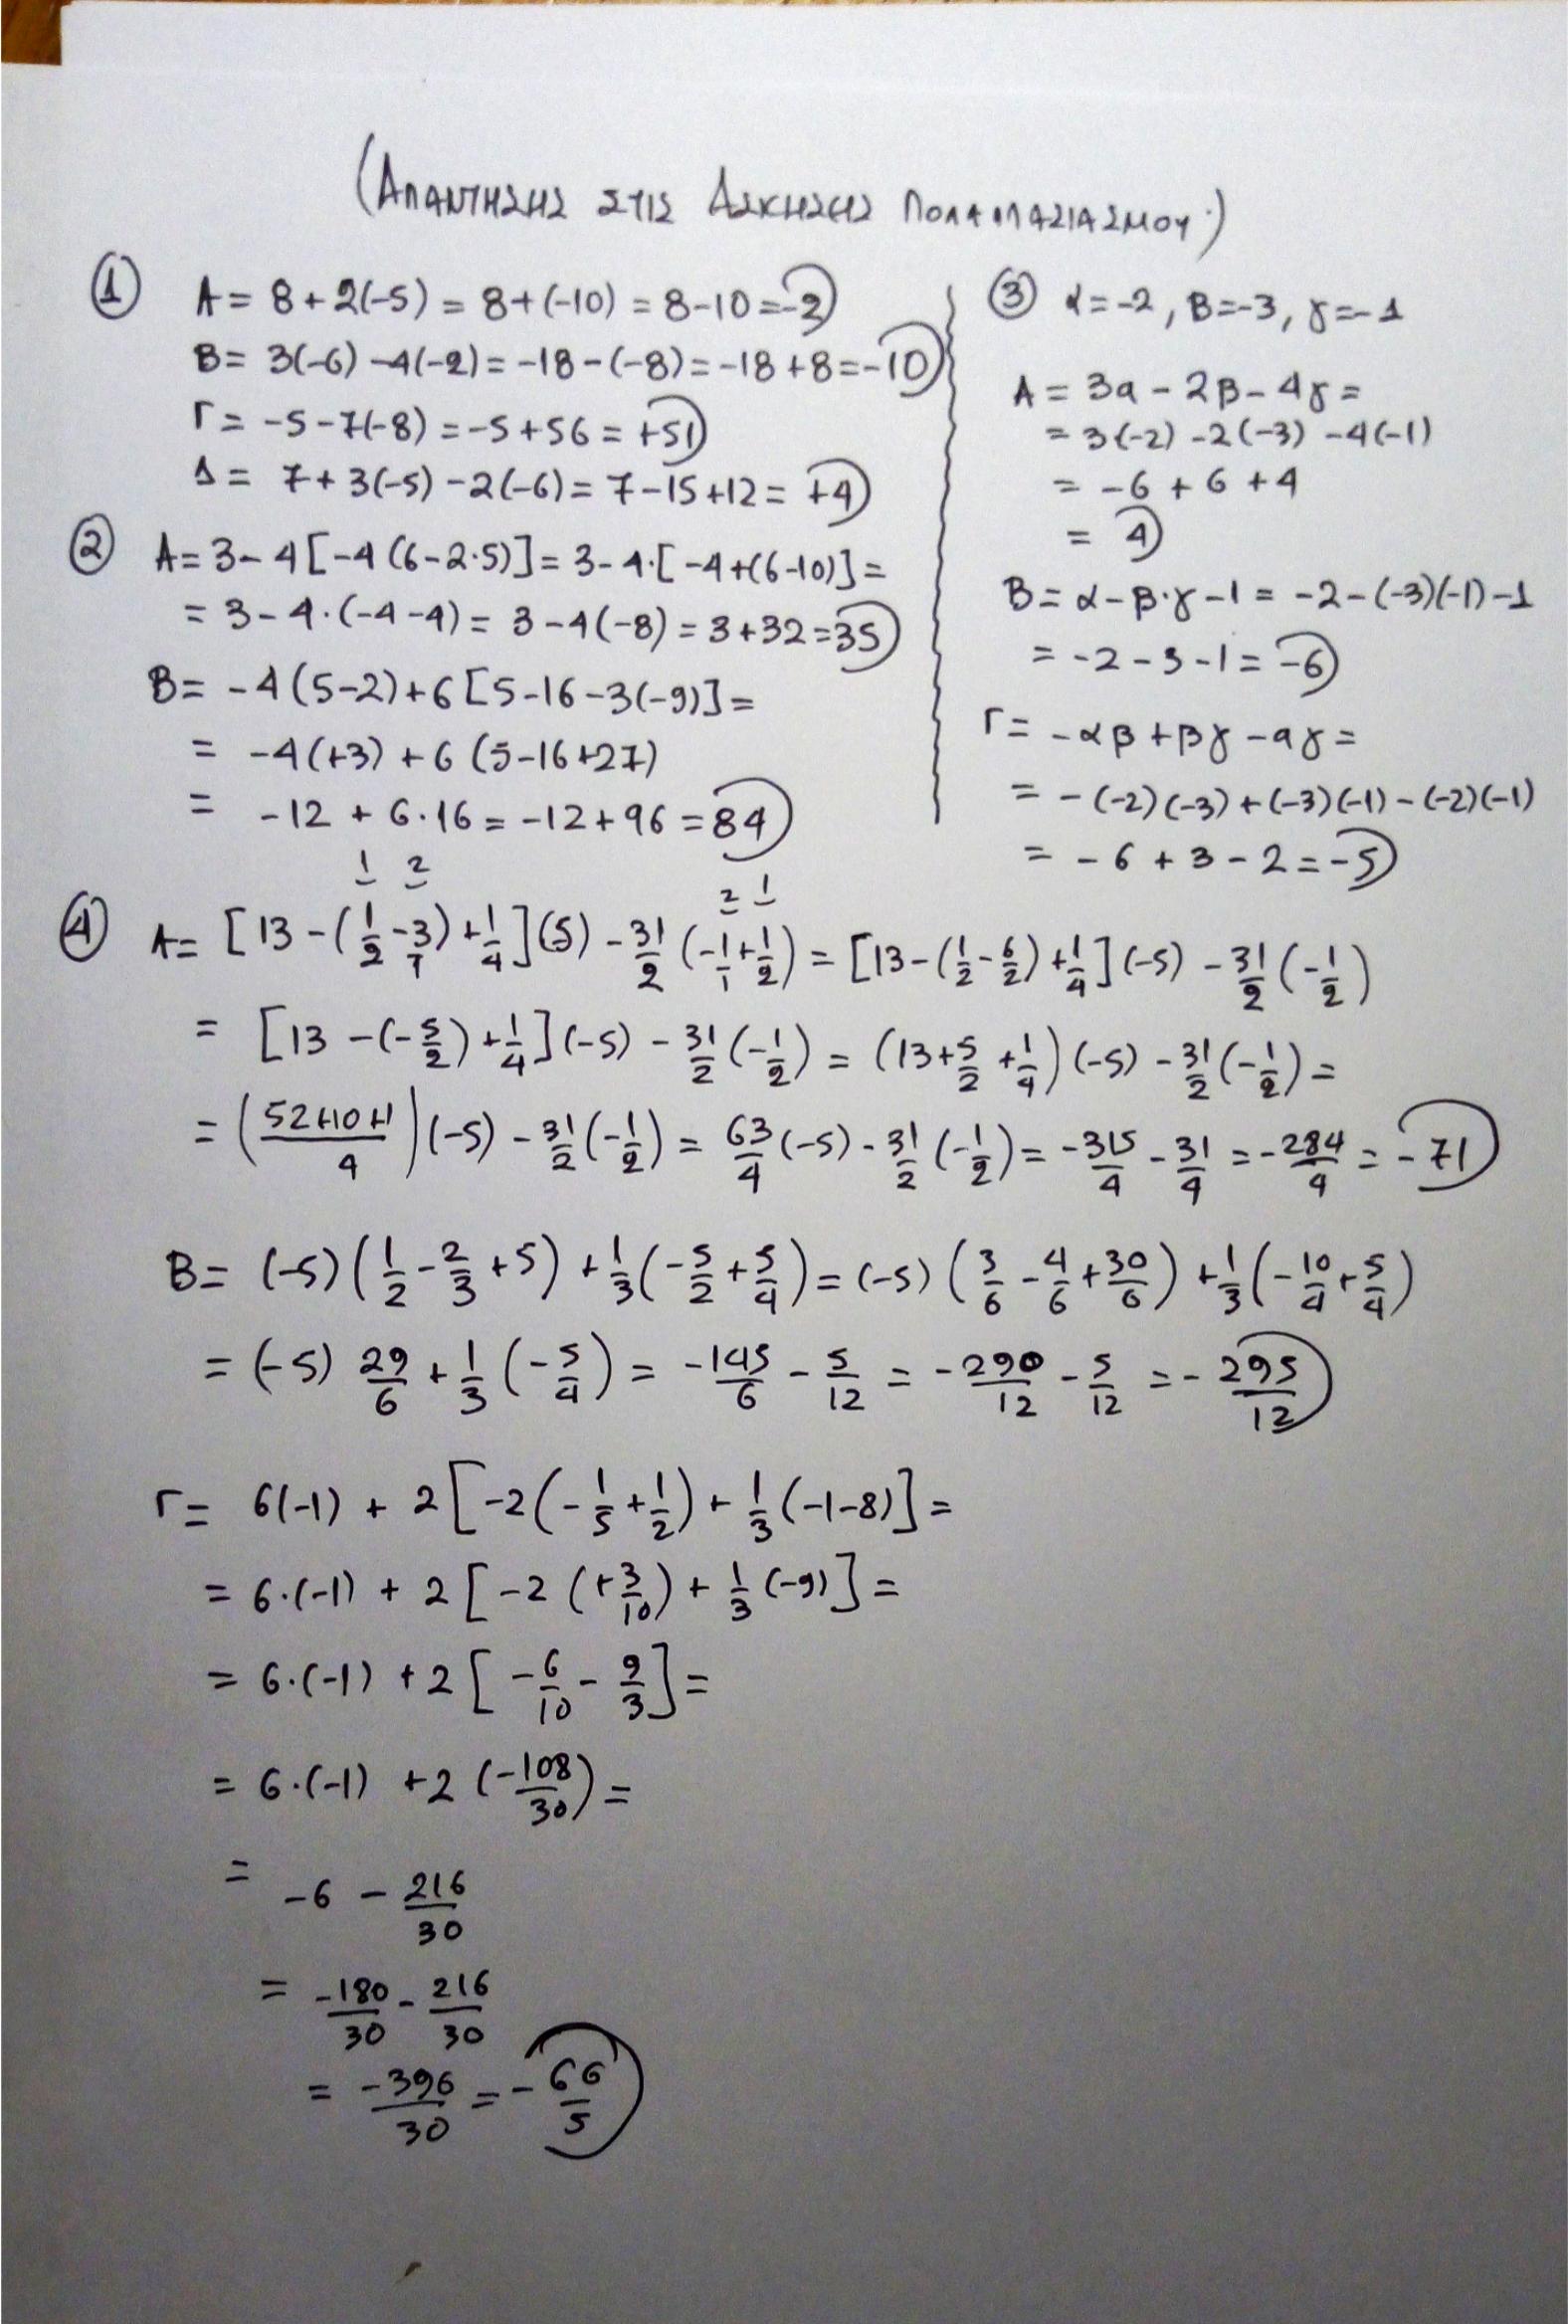 (ΑΠΑΝΤΗΣΗΣ ΣΤΙΣ ΑΣΚΗΣΗΣ ΠΟΛΑΠΛΑΣΙΑΣΜΟΥ.)
① A = 8 + 2(-5) = 8 + (-10) = 8-10 = -2
B = 3(-6) -4(-2) = -18 - (-8) = -18 +8 = -10
Γ = -5 -7(-8) = -5 +56 = +51
Δ = 7 + 3(-5) -2(-6) = 7-15+12 = +4
② A = 3 - 4[-4(6-2·5)] = 3 - 4·[-4+(6-10)] =
= 3 - 4·(-4-4) = 3 -4(-8) = 3+32 = 35
B = -4(5-2)+6[5-16-3(-9)] =
= -4(+3) + 6(5-16+27)
= -12 + 6·16 = -12+96 = 84
③ α=-2, β=-3, γ=-1
A = 3α - 2β - 4γ =
= 3(-2) -2(-3) -4(-1)
= -6 + 6 + 4
= 4
B = α - β·γ -1 = -2-(-3)(-1)-1
= -2 - 3 -1 = -6
Γ = -αβ + βγ - αγ =
= -(-2)(-3) + (-3)(-1) - (-2)(-1)
= -6 + 3 - 2 = -5
1 2 2 1
④ A = [13 - (1/2 - 3/1) + 1/4](5) - 31/2 (-1/1 + 1/2) = [13 - (1/2 - 6/2) + 1/4](-5) - 31/2 (-1/2)
= [13 - (-5/2) + 1/4](-5) - 31/2 (-1/2) = (13 + 5/2 + 1/4)(-5) - 31/2 (-1/2) =
= (52+10+1/4)(-5) - 31/2 (-1/2) = 63/4 (-5) - 31/2 (-1/2) = -315/4 - 31/4 = -284/4 = -71
B = (-5)(1/2 - 2/3 + 5) + 1/3 (-5/2 + 5/4) = (-5)(3/6 - 4/6 + 30/6) + 1/3 (-10/4 + 5/4)
= (-5) 29/6 + 1/3 (-5/4) = -145/6 - 5/12 = -290/12 - 5/12 = -295/12
Γ = 6(-1) + 2[-2(-1/5 + 1/2) + 1/3 (-1-8)] =
= 6·(-1) + 2[-2(+3/10) + 1/3 (-9)] =
= 6·(-1) + 2[-6/10 - 9/3] =
= 6·(-1) + 2(-108/30) =
= -6 - 216/30
= -180/30 - 216/30
= -396/30 = -66/5